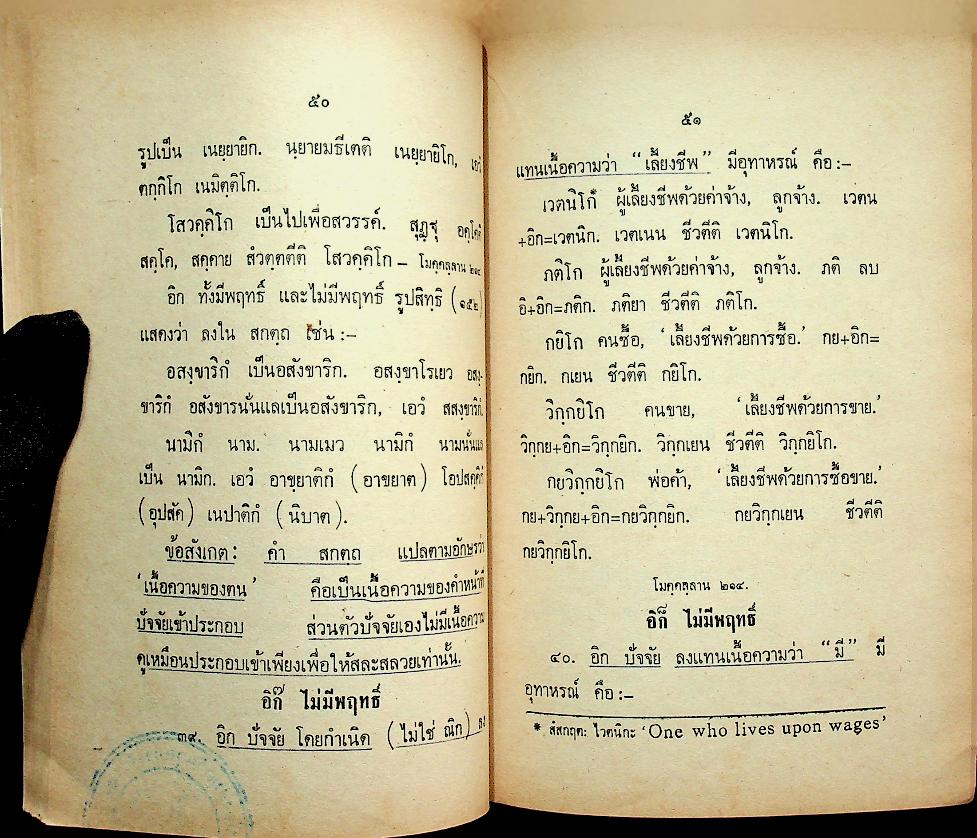 ๕๐
รูปเป็น เนยฺยายิก. นฺยายมธีเตติ เนยฺยายิโก,
ตกฺกิโก เนมิตฺติโก.
โสวคฺคิโก เป็นไปเพื่อสวรรค์. สุฏฺฐุ
สคฺโค, สคฺคาย สํวตฺตตีติ โสวคฺคิโก — โมคฺคลฺลาน ๒๑๔
อิก ทั้งมีพฤทธิ์ และไม่มีพฤทธิ์ รูปสิทธิ (๑๕๒)
แสดงว่า ลงใน สกตฺถ เช่น :—
อสงฺขาริกํ เป็นอสังขาริก. อสงฺขาโรเยว อสงฺ-
ขาริกํ อสังขารนั่นแลเป็นอสังขาริก, เอวํ สสงฺขาริกํ.
นามิกํ นาม. นามเมว นามิกํ นามนั่นแล
เป็น นามิก. เอวํ อาขฺยาติกํ (อาขยาต) โอปสคฺคิกํ
(อุปสัค) เนปาติกํ (นิบาต).
ข้อสังเกต: คำ สกตฺถ แปลตามอักษรว่า
'เนื้อความของตน' คือเป็นเนื้อความของคำหน้าที่
ปัจจัยเข้าประกอบ ส่วนตัวปัจจัยเองไม่มีเนื้อความ
ดูเหมือนประกอบเข้าเพียงเพื่อให้สละสลวยเท่านั้น.
อิก๊ ไม่มีพฤทธิ์
๓๙. อิก ปัจจัย โดยกำเนิด (ไม่ใช่ ณิก) ลง
๕๑
แทนเนื้อความว่า “เลี้ยงชีพ” มีอุทาหรณ์ คือ :—
เวตนิโก* ผู้เลี้ยงชีพด้วยค่าจ้าง, ลูกจ้าง. เวตน
+อิก=เวตนิก. เวตเนน ชีวตีติ เวตนิโก.
ภติโก ผู้เลี้ยงชีพด้วยค่าจ้าง, ลูกจ้าง. ภติ ลบ
อิ+อิก=ภติก. ภติยา ชีวตีติ ภติโก.
กยิโก คนซื้อ, 'เลี้ยงชีพด้วยการซื้อ.' กย+อิก=
กยิก. กเยน ชีวตีติ กยิโก.
วิกฺกยิโก คนขาย, 'เลี้ยงชีพด้วยการขาย.'
วิกฺกย+อิก=วิกฺกยิก. วิกฺกเยน ชีวตีติ วิกฺกยิโก.
กยวิกฺกยิโก พ่อค้า, 'เลี้ยงชีพด้วยการซื้อขาย.'
กย+วิกฺกย+อิก=กยวิกฺกยิก. กยวิกฺกเยน ชีวตีติ
กยวิกฺกยิโก.
โมคฺคลฺลาน ๒๑๔.
อิก๊ ไม่มีพฤทธิ์
๔๐. อิก ปัจจัย ลงแทนเนื้อความว่า “มี” มี
อุทาหรณ์ คือ :—
* สํสกฤต: ไวตนิกะ 'One who lives upon wages'